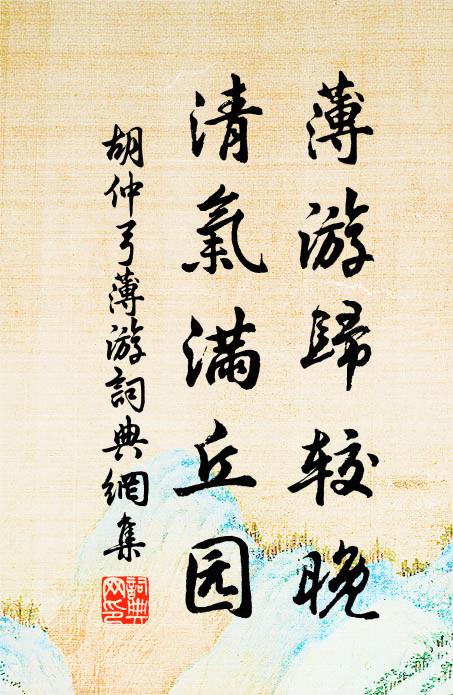 薄游歸较晚
清氣满丘园
胡仲弓薄游詞典網集
詞典網印